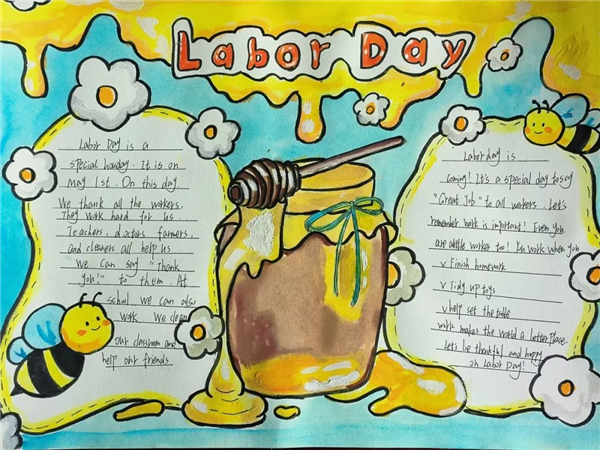 Labor Day
Labor Day is a
special houday. It is on
may 1st. On this day
We thank all the workers.
They work hard for us
Teachers, doctors farmers,
and cleaners all help us
We can say "thank
you!" to them. At
schol we can also
work. We clean
our classroom and
help our friends
Labor day is
coming! It's a special day to say
"Great Job" to all workers. Let's
remember work is important! Even you
are little worker too! You work when you
v Finish homework
v Tidy up toys
v help set the table
work makes the world a better place.
Let's be thankful and happy
on Labor Day!